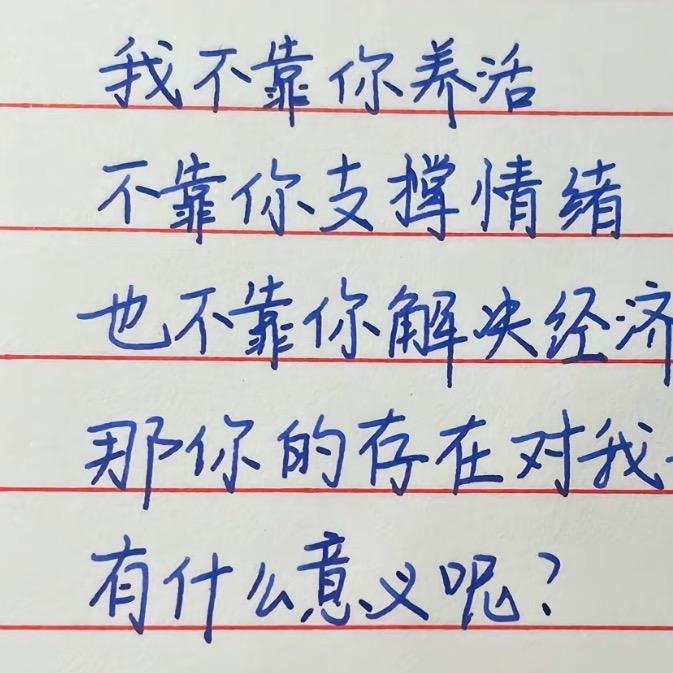 我不靠你养活
不靠你支撑情绪
也不靠你解决经济
那你的存在对我
有什么意义呢？